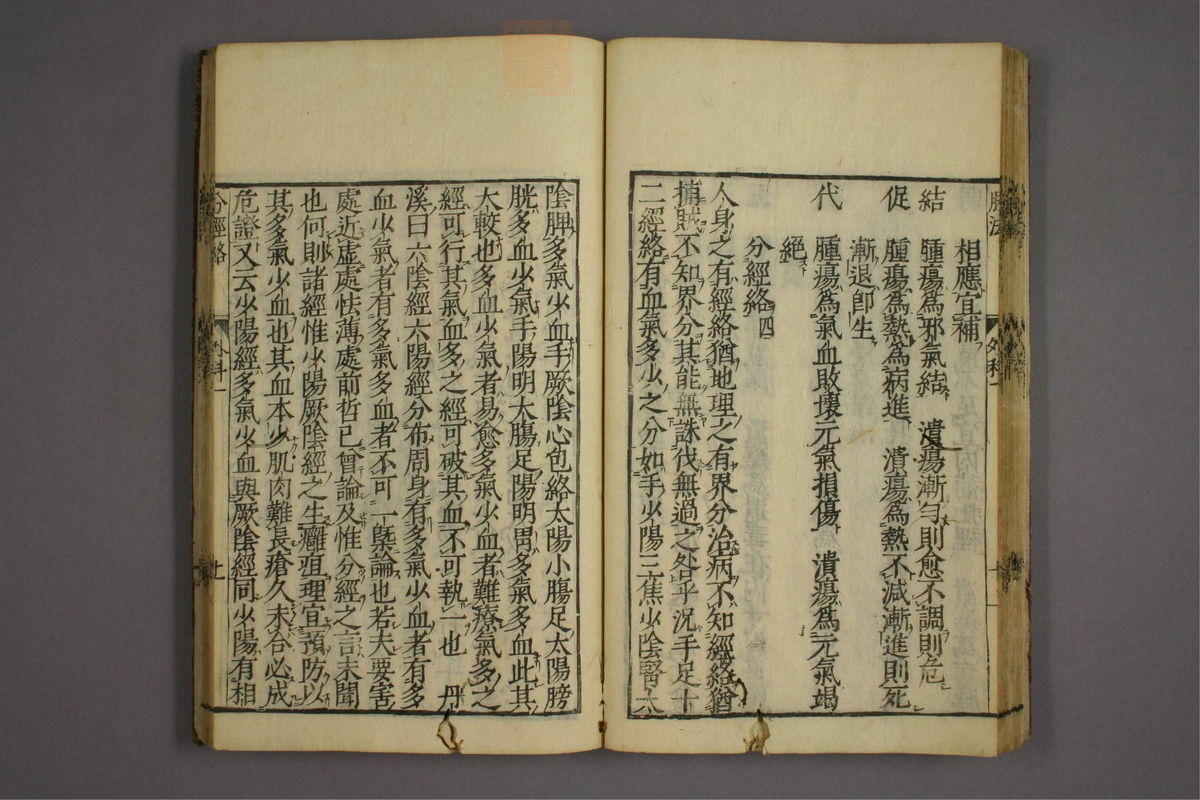 脉法　外科一　十一
相應宜補
結　腫瘍爲邪氣結　潰瘍漸勻則愈不調則危
促　腫瘍爲熱爲病進　潰瘍爲熱不減漸進則死
漸退卽生
代　腫瘍爲氣血敗壞元氣損傷　潰瘍爲元氣竭
絕
分經絡四
人身之有經絡猶地理之有界分治病不知經絡猶
捕賊不知界分其能無誅伐無過之咎乎況手足十
二經絡有血氣多少之分如手少陽三焦少陰腎太
陰脾多氣少血手厥陰心包絡太陽小腸足太陽膀
胱多血少氣手陽明大腸足陽明胃多氣多血此其
大較也多血少氣者易愈多氣少血者難療氣多之
經可行其氣血多之經可破其血不可執一也　丹
溪曰六陰經六陽經分布周身有多氣少血者有多
血少氣者有多氣多血者不可一槩論也若夫要害
處近虛處怯薄處前哲已曾論及惟分經之言未聞
也何則諸經惟少陽厥陰經之生癰疽理宜預防以
其多氣少血也其血本少肌肉難長瘡久未合必成
危證又云少陽經多氣少血與厥陰經同少陽有相
分經絡　外科一　十一